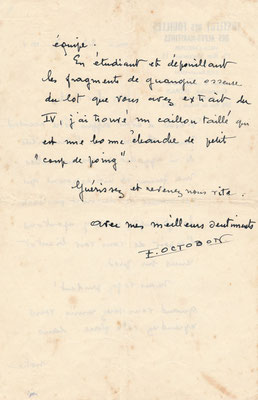 équipe.
En étudiant et dépouillant
les fragments de gangue osseuse
du lot que vous avez extrait du
IV, j'ai trouvé un caillou taillé qui
est une bonne ébauche de petit
"coup de poing".
Guérissez et revenez nous vite.
avec mes meilleurs sentiments
F. OCTOBON